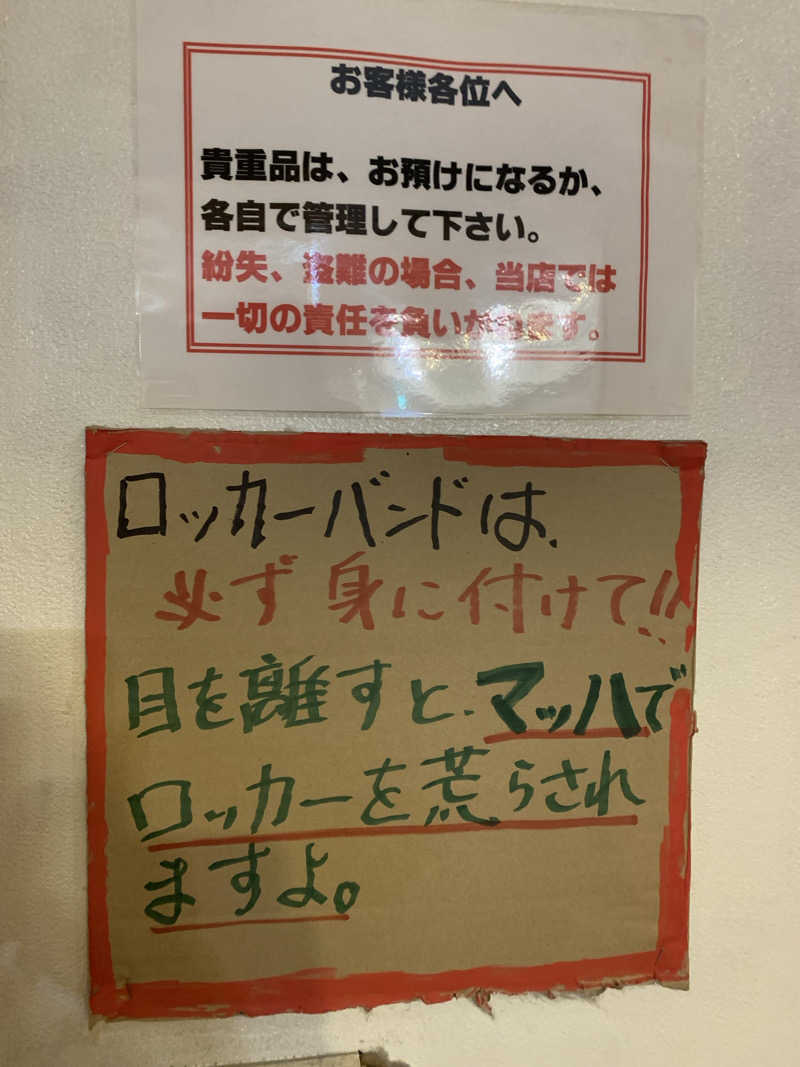 お客様各位へ
貴重品は、お預けになるか、
各自で管理して下さい。
紛失、盗難の場合、当店では
一切の責任を負いかねます。
ロッカーバンドは、
必ず身に付けて!!
目を離すと、マッハで
ロッカーを荒らされ
ますよ。